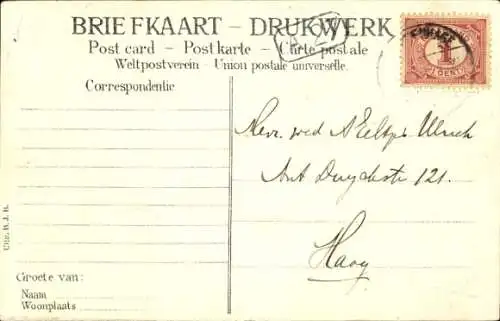 BRIEFKAART – DRUKWERK
Post card – Postkarte – Carte postale
Weltpostverein – Union postale universelle.
Correspondentie
1
CENT
Mevr. wed
Ant Duyckstr 121.
Haag
Uitg. B. J. B.
Groete van:
Naam
Woonplaats